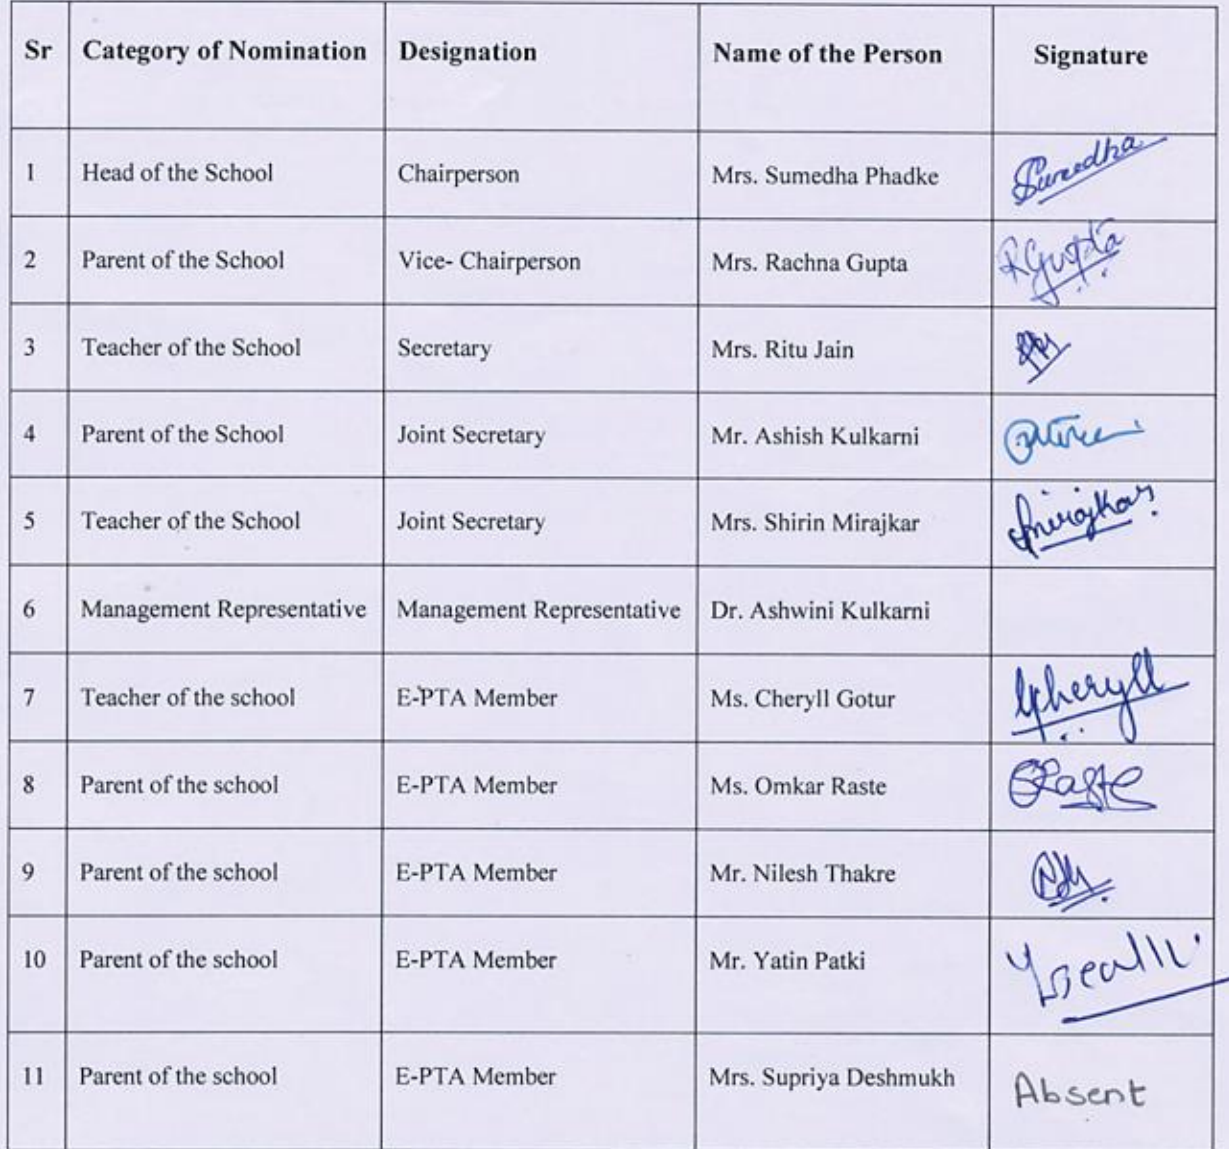 Sr Category of Nomination Designation Name of the Person Signature
1 Head of the School Chairperson Mrs. Sumedha Phadke Sumedha
2 Parent of the School Vice- Chairperson Mrs. Rachna Gupta RGupta
3 Teacher of the School Secretary Mrs. Ritu Jain
4 Parent of the School Joint Secretary Mr. Ashish Kulkarni
5 Teacher of the School Joint Secretary Mrs. Shirin Mirajkar
6 Management Representative Management Representative Dr. Ashwini Kulkarni
7 Teacher of the school E-PTA Member Ms. Cheryll Gotur Cheryll
8 Parent of the school E-PTA Member Ms. Omkar Raste
9 Parent of the school E-PTA Member Mr. Nilesh Thakre
10 Parent of the school E-PTA Member Mr. Yatin Patki
11 Parent of the school E-PTA Member Mrs. Supriya Deshmukh Absent